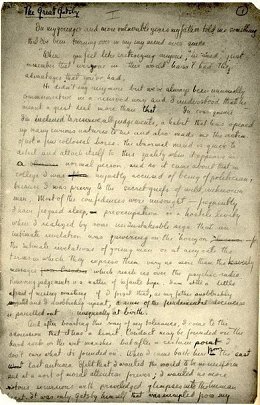 The Great Gatsby
1
In my younger and more vulnerable years my father told me something
that I've been turning over in my mind ever since.
When you feel like criticizing anyone, he said, just
remember that everyone in this world hasn't had the
advantages that you've had.
He didn't say any more but we've always been unusually
communicative in a reserved way and I understood that he
meant a great deal more than that. In consequence
I'm inclined to reserve all judgements, a habit that has opened
up many curious natures to me and also made me the victim
of not a few
The abnormal mind is quick to
and attach itself to this quality when it appears in
a normal person and so it came about that in
college I was unjustly accused of being a politician,
because I was privy to the secret griefs of wild, unknown
men. Most of the confidences were unsought — frequently
I have feigned sleep, preoccupation or a hostile levity
when I realized by some unmistakable sign that an
intimate revelation was quivering on the horizon
the intimate revelations of young men or at any rate the
terms in which they express them vary no more than the
messages which reach us over the psychic radio.
Reserving judgements is a matter of infinite hope. I am still a little
afraid of missing something if I forget that, as my father snobbishly
suggested and I snobbishly repeat, a sense of the fundamental decencies
is parcelled out unequally at birth.
And after boasting this way of my tolerance, I come to the
admission that it has a limit. Conduct may be founded on the
hard rock or the wet marshes but after a certain point I
don't care what it's founded on. When I came back here from the east
last autumn I felt that I wanted the world to be in uniform
and at a sort of moral attention forever; I wanted no more
riotous excursions with privileged glimpses into the human
heart. It was only Gatsby himself that was exempted from my